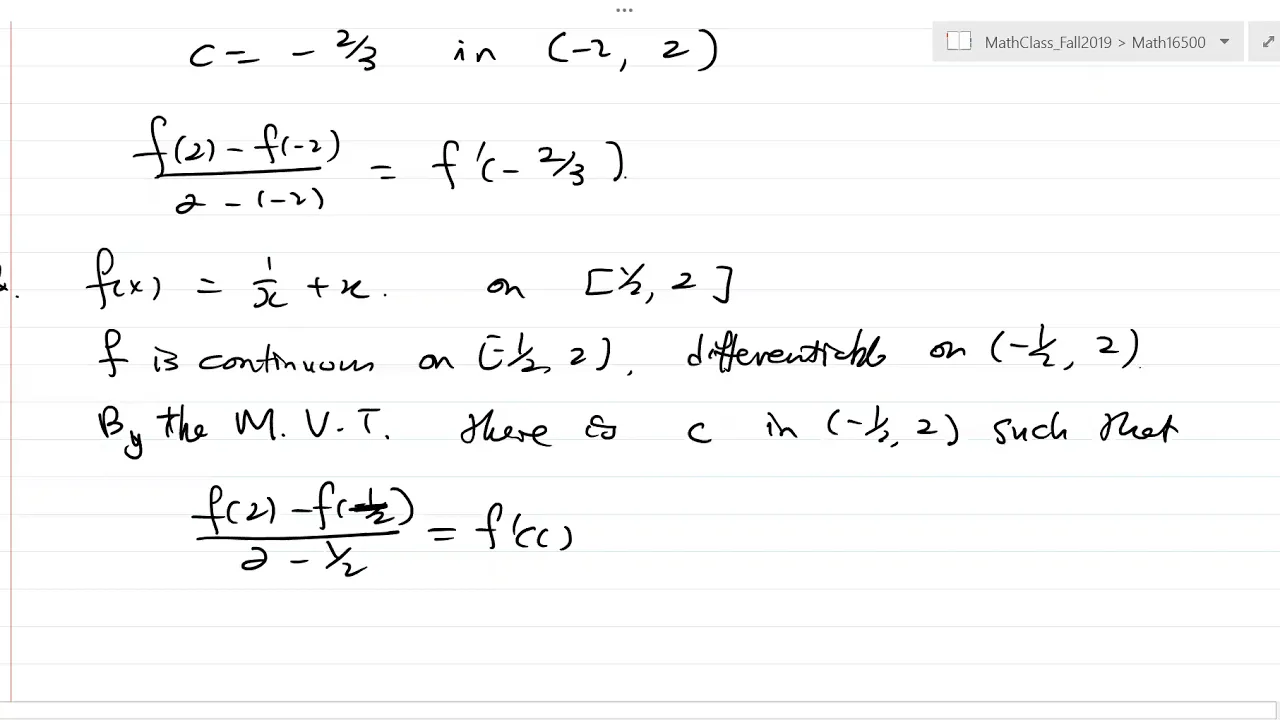 c = - 2/3 in (-2, 2)
MathClass_Fall2019 > Math16500
f(2) - f(-2) / 2 - (-2) = f'(- 2/3).
f(x) = 1/x + x. on [1/2, 2]
f is continuous on [-1/2, 2], differentiable on (-1/2, 2).
By the M.V.T. there is c in (-1/2, 2) such that
f(2) - f(-1/2) / 2 - 1/2 = f'(c)